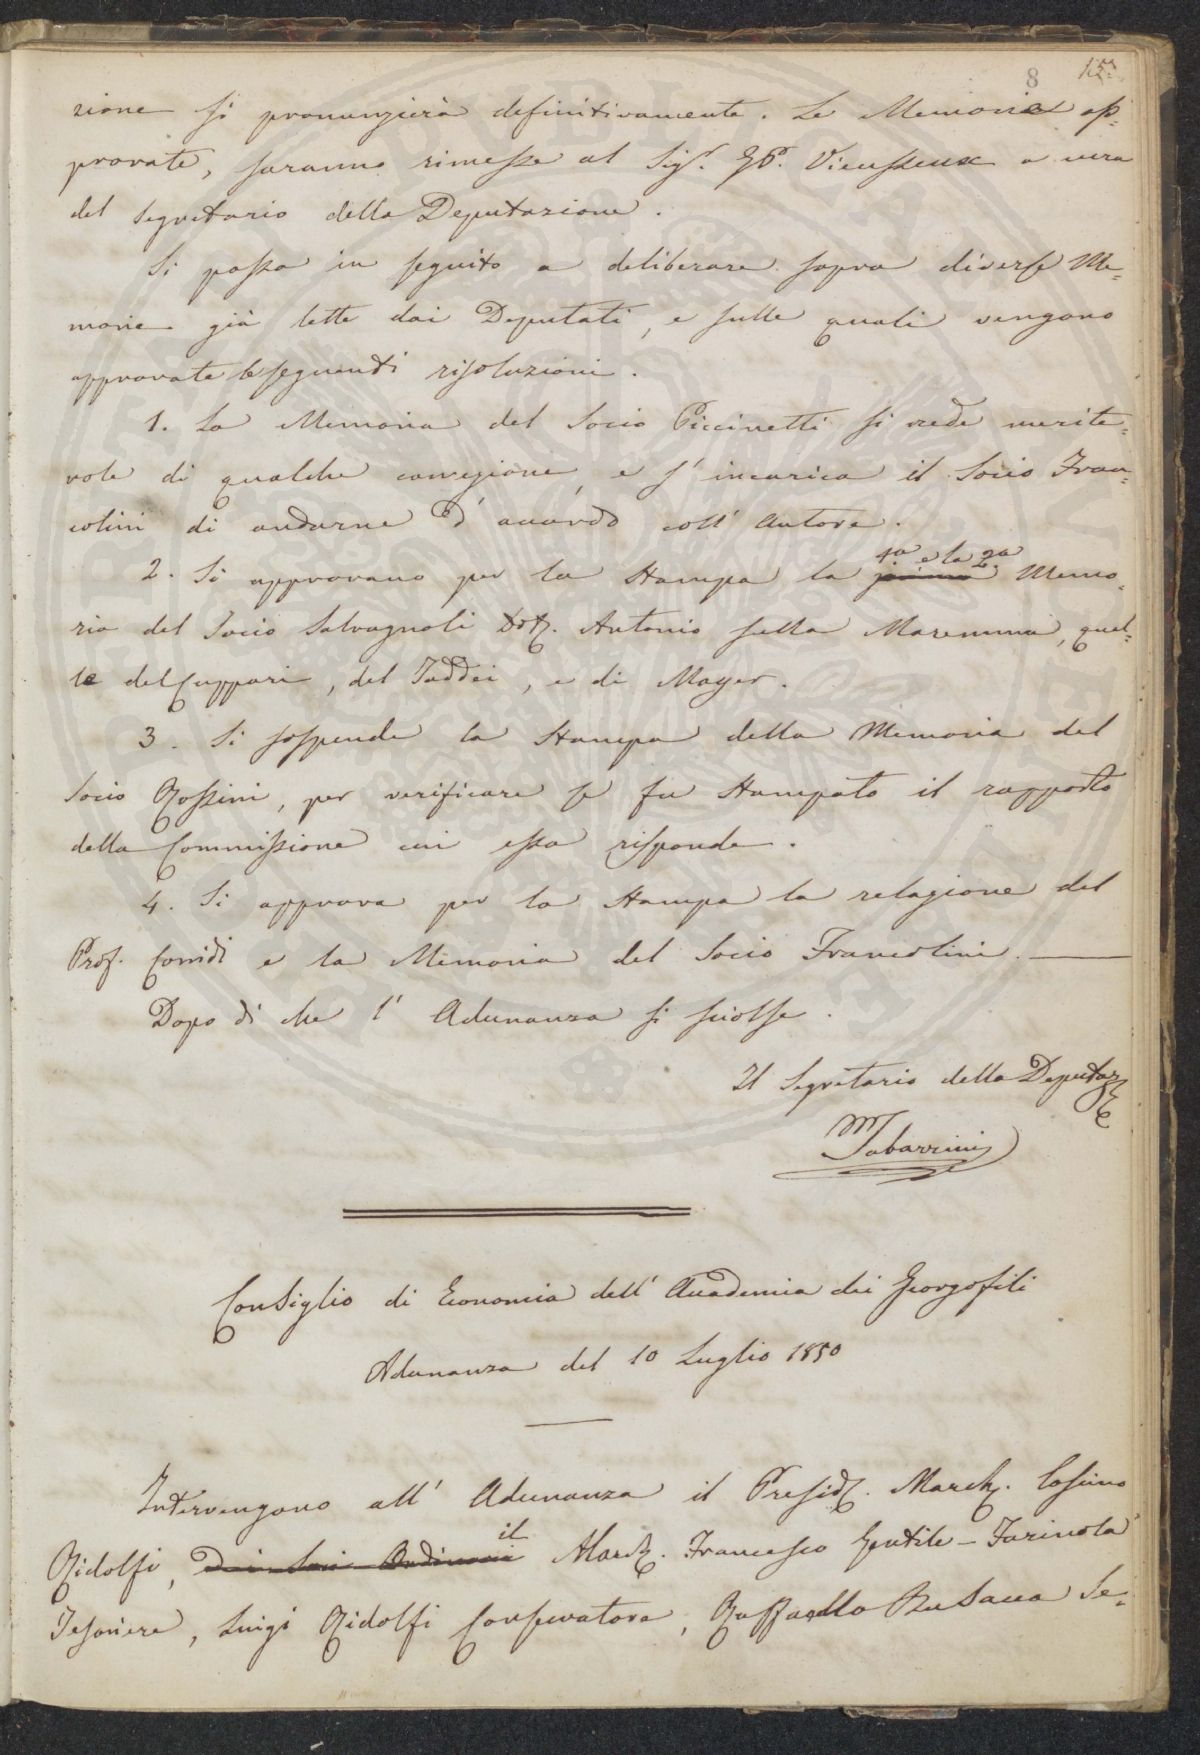 8 15.
zione si pronunzierà definitivamente. Le Memorie ap-
provate, saranno rimesse al Sig.r G.P. Vieusseux a cura
del Segretario della Deputazione.
Si passa in seguito a deliberare sopra diverse Me-
morie già lette dai Deputati, e sulle quali vengono
approvate le seguenti risoluzioni.
1. La Memoria del Socio Piccinetti si crede merite-
vole di qualche correzione, e s'incarica il Socio Fran-
colini di andarne d'accordo coll'Autore.
2. Si approvano per la Stampa la prima 1a e la 2a Memo-
ria del Socio Salvagnoli Dott. Antonio sulla Maremma, quel-
le del Cuppari, del Taddei, e di Mayer.
3. Si sospende la Stampa della Memoria del
Socio Rossini, per verificare se fu Stampato il rapporto
della Commissione cui essa risponde.
4. Si approva per la Stampa la relazione del
Prof. Corridi e la Memoria del Socio Francolini.
Dopo di che l'Adunanza si sciolse.
Il Segretario della Deputaz.e
M Tabarrini
Consiglio di Economia dell'Accademia dei Georgofili
Adunanza del 10 Luglio 1850
Intervengono all'Adunanza il Presid. March. Cosimo
Ridolfi, Dei Soci Ordinari il March. Francesco Gentile-Farinola
Tesoriere, Luigi Ridolfi Conservatore, Raffaello Busacca Se-